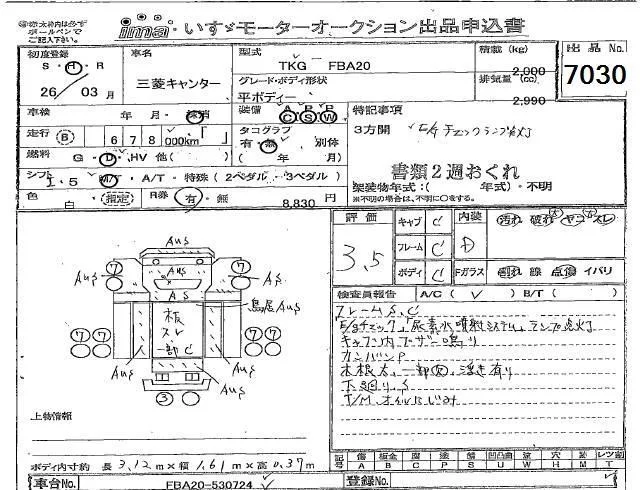 ※太枠内は必ず
ボールペンで
ご記入下さい。
ima いすゞモーターオークション出品申込書
初度登録 車名 型式 積載(kg) 出品No.
S・H・R 三菱キャンター TKG FBA20 2,000 7030
26 03月 グレード・ボディ形状 排気量(cc)
平ボディー 2,990
車検 年・月・抹消 装備 A P P C S W 特記事項
走行 B 678000km「 」 タコグラフ 3方開 E/Gチェックランプ点灯
有・無 別体
燃料 G・D・HV 他( ) ( 年 月) 書類2週おくれ
シフト I・5 M/T・A/T・特殊(2ペダル・3ペダル) 架装物年式:( 年式)・不明
※不明の場合は、不明に○をする。
色 白 指定 R券 有・無 8,830円
評価 キャブ C 内装 汚れ 破れ ヤコゲ スレ
3.5 フレーム C D
ボディ C Fガラス 割れ 線 点傷 イバリ
検査員報告 A/C( ✓ ) B/T( )
フレームS.C
E/gチェック「尿素水噴射システム」ランプ点灯
キャブ内ブザー鳴り
カンバンP
木根太、一部欠、浮き有り
下廻り.S
T/M.オイルにじみ
AUS
7 AUS 7
AUS AUS
AS 鳥居AUS
板
スレ
一部C
7 7 7 7
AUS AUS
AUS AUS
3
上物情報
ボディ内寸約 長 3.12m×幅 1.61m×高 0.37m
記号 傷 板金 腐 塗 錆 凹 凸 曲 W 穴 時 レツ割
A B C P S U W H M T
車台No. FBA20-530724 登録No.